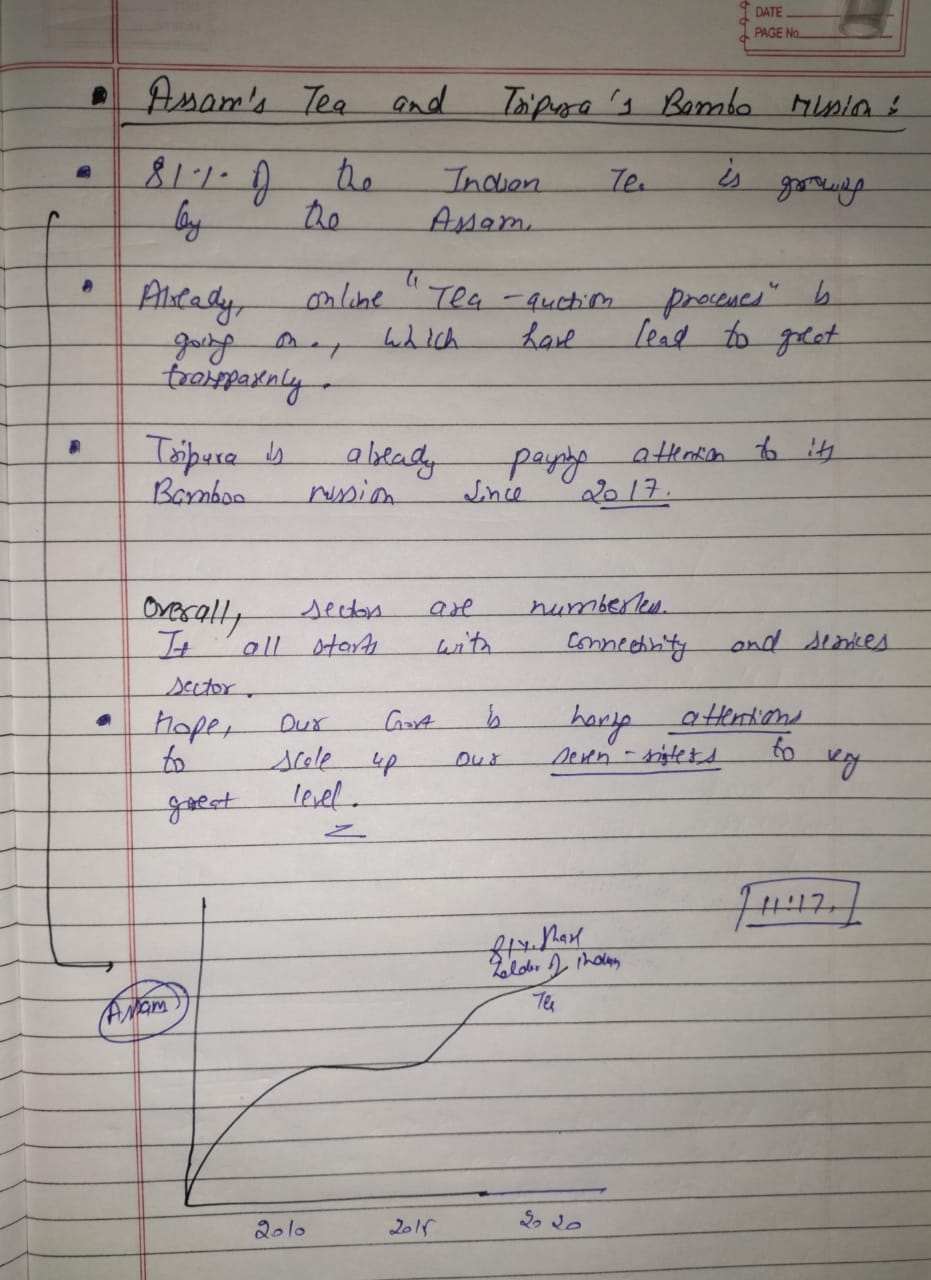 DATE
PAGE No.
Assam's Tea and Tripura's Bambo mission:
81% of the Indian Te. is growing
by the Assam.
Already, online "Tea-auction processes" is
going on., which have lead to great
transparenly.
Tripura is already paying attention to its
Bamboo mission since 2017.
Overall, sectors are numberless.
It all starts with connectivity and services
sector.
Hope, our Govt is having attentions
to scale up our seven-sisters to very
great level.
11:17.
81%. share
holder of Indian
Tea
Assam
2010 2015 2020